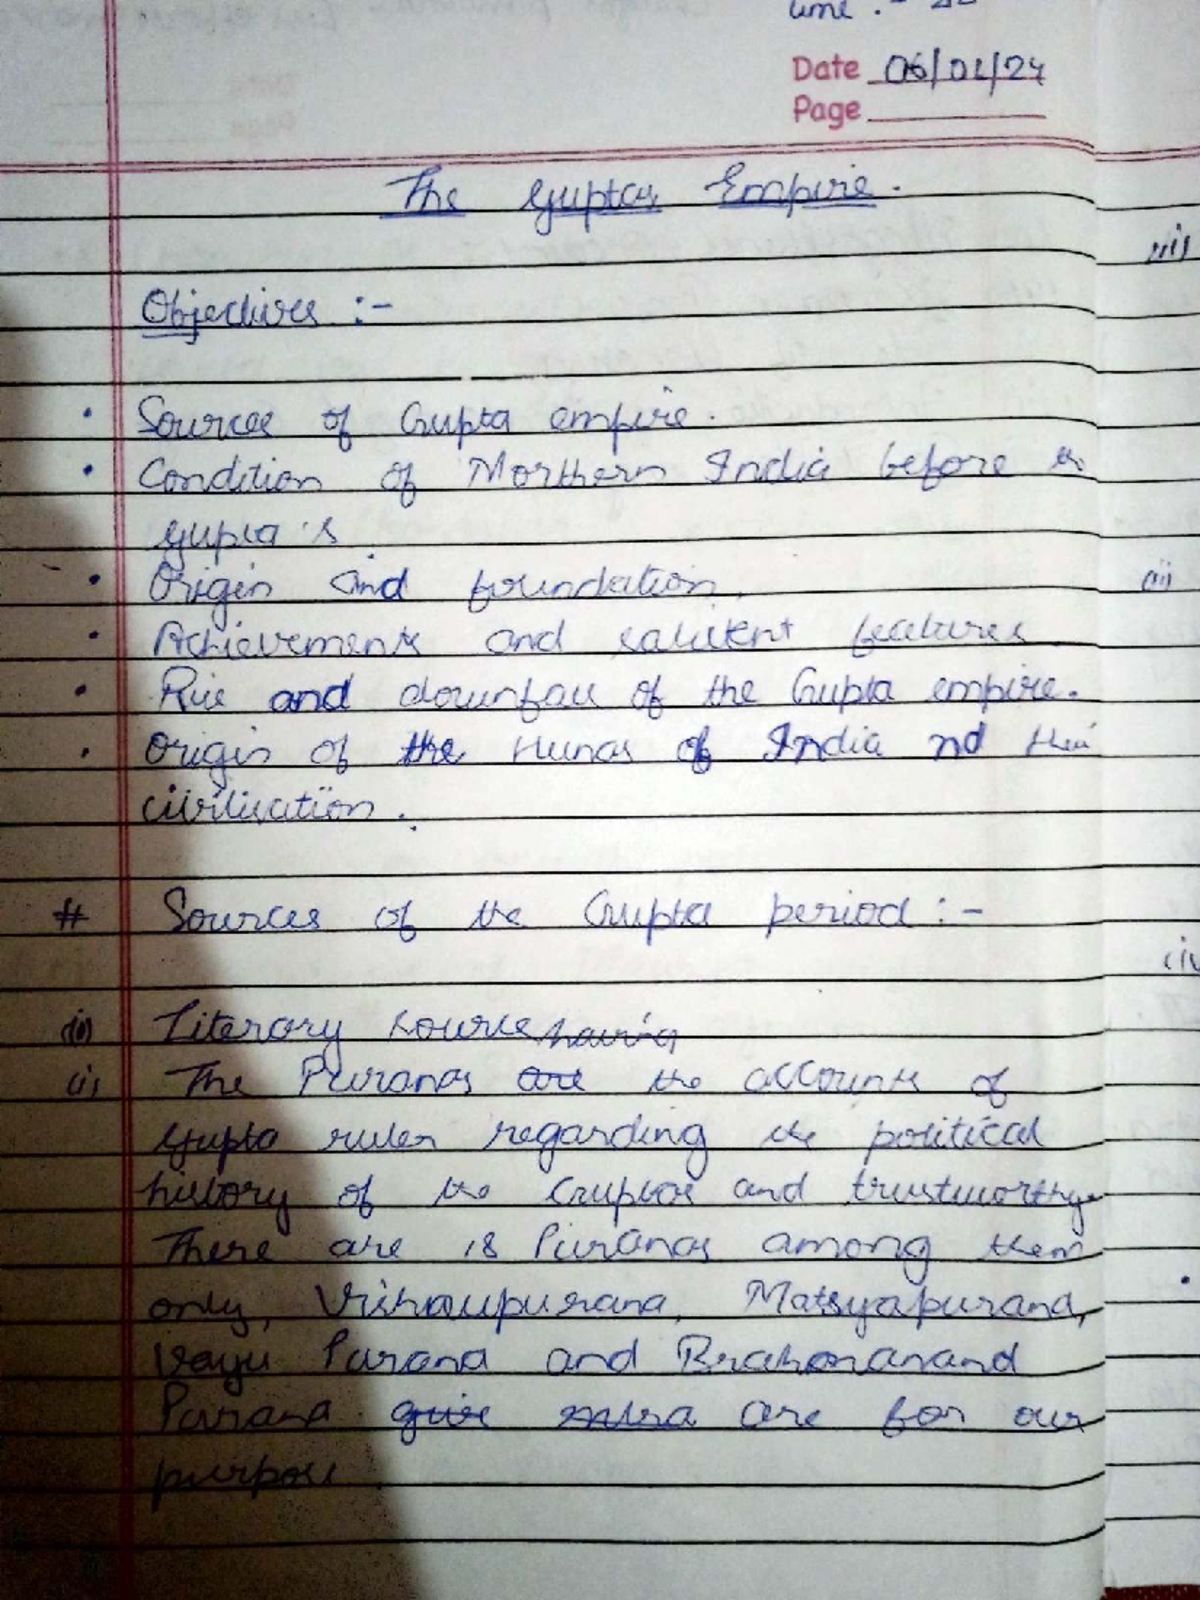 Time :-
Date 06/01/24
Page
The Guptas Empire.
Objectives :-
• Sources of Gupta empire.
• Condition of Northern India before the
gupta's
• Origin and foundation.
• Achievements and salient features
• Rise and downfall of the Gupta empire.
• Origin of the Hunas of India nd their
civilisation.
# Sources of the Gupta period :-
(i) Literary source having
(i) The Puranas are the accounts of
Gupta ruler regarding the political
history of the Guptas and trustworthy.
There are 18 Puranas among them
only, Vishnupurana, Matsyapurana,
Vayu Purana and Brahmanand
Purana give are for our
purpose
iii)
(ii)
(iv